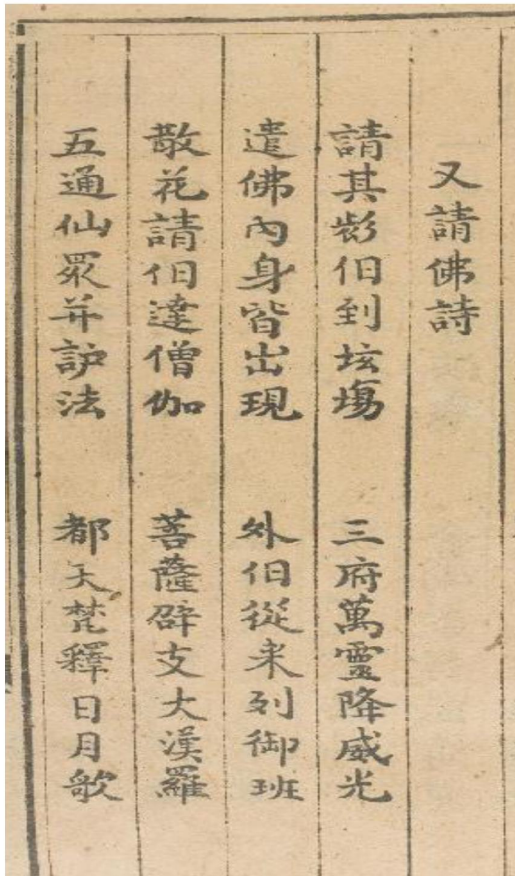 又請佛詩
請其彩伯到垓塲 三府萬靈降威光
遣佛內身皆出現 外伯從来列御班
散花請伯達僧伽 菩薩辟支大漢羅
五通仙眾并訡法 都天梵釋日月歌